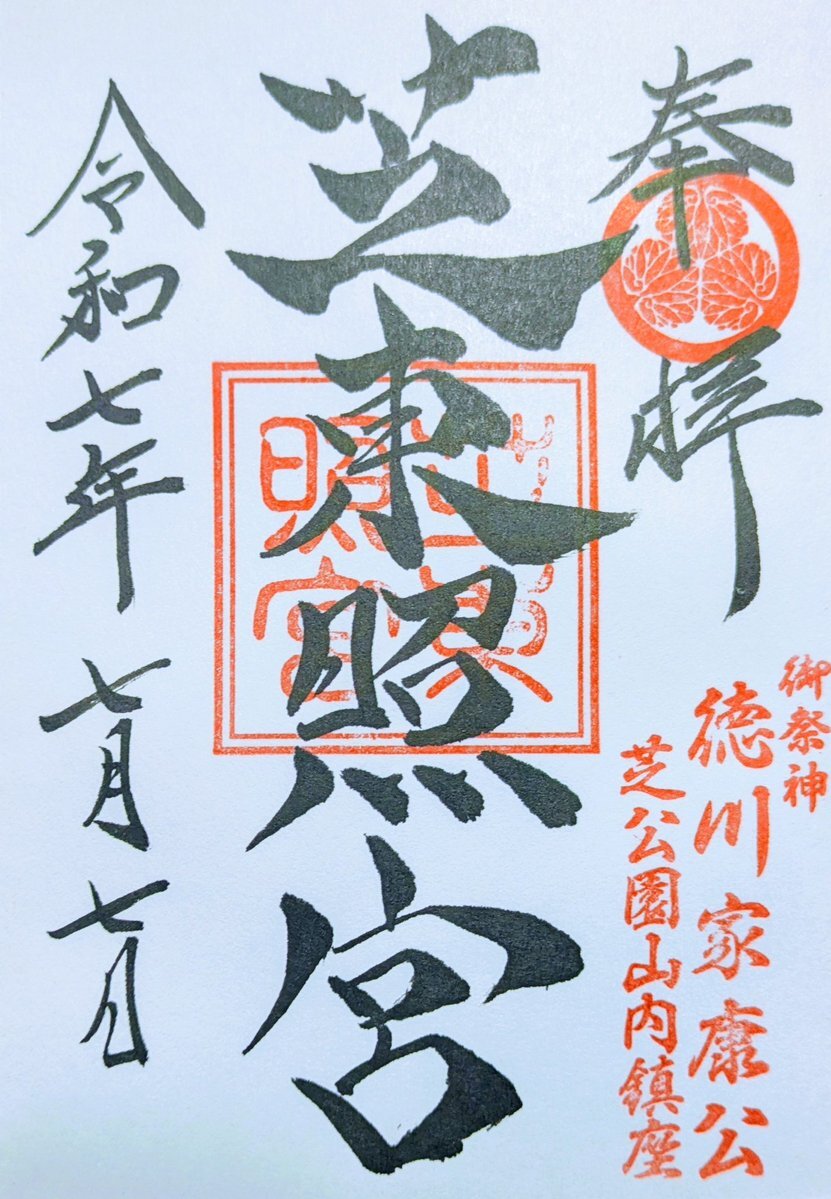 奉拝
御祭神
徳川家康公
芝公園山内鎮座
芝東照宮
芝東
照宮
令和七年七月七日